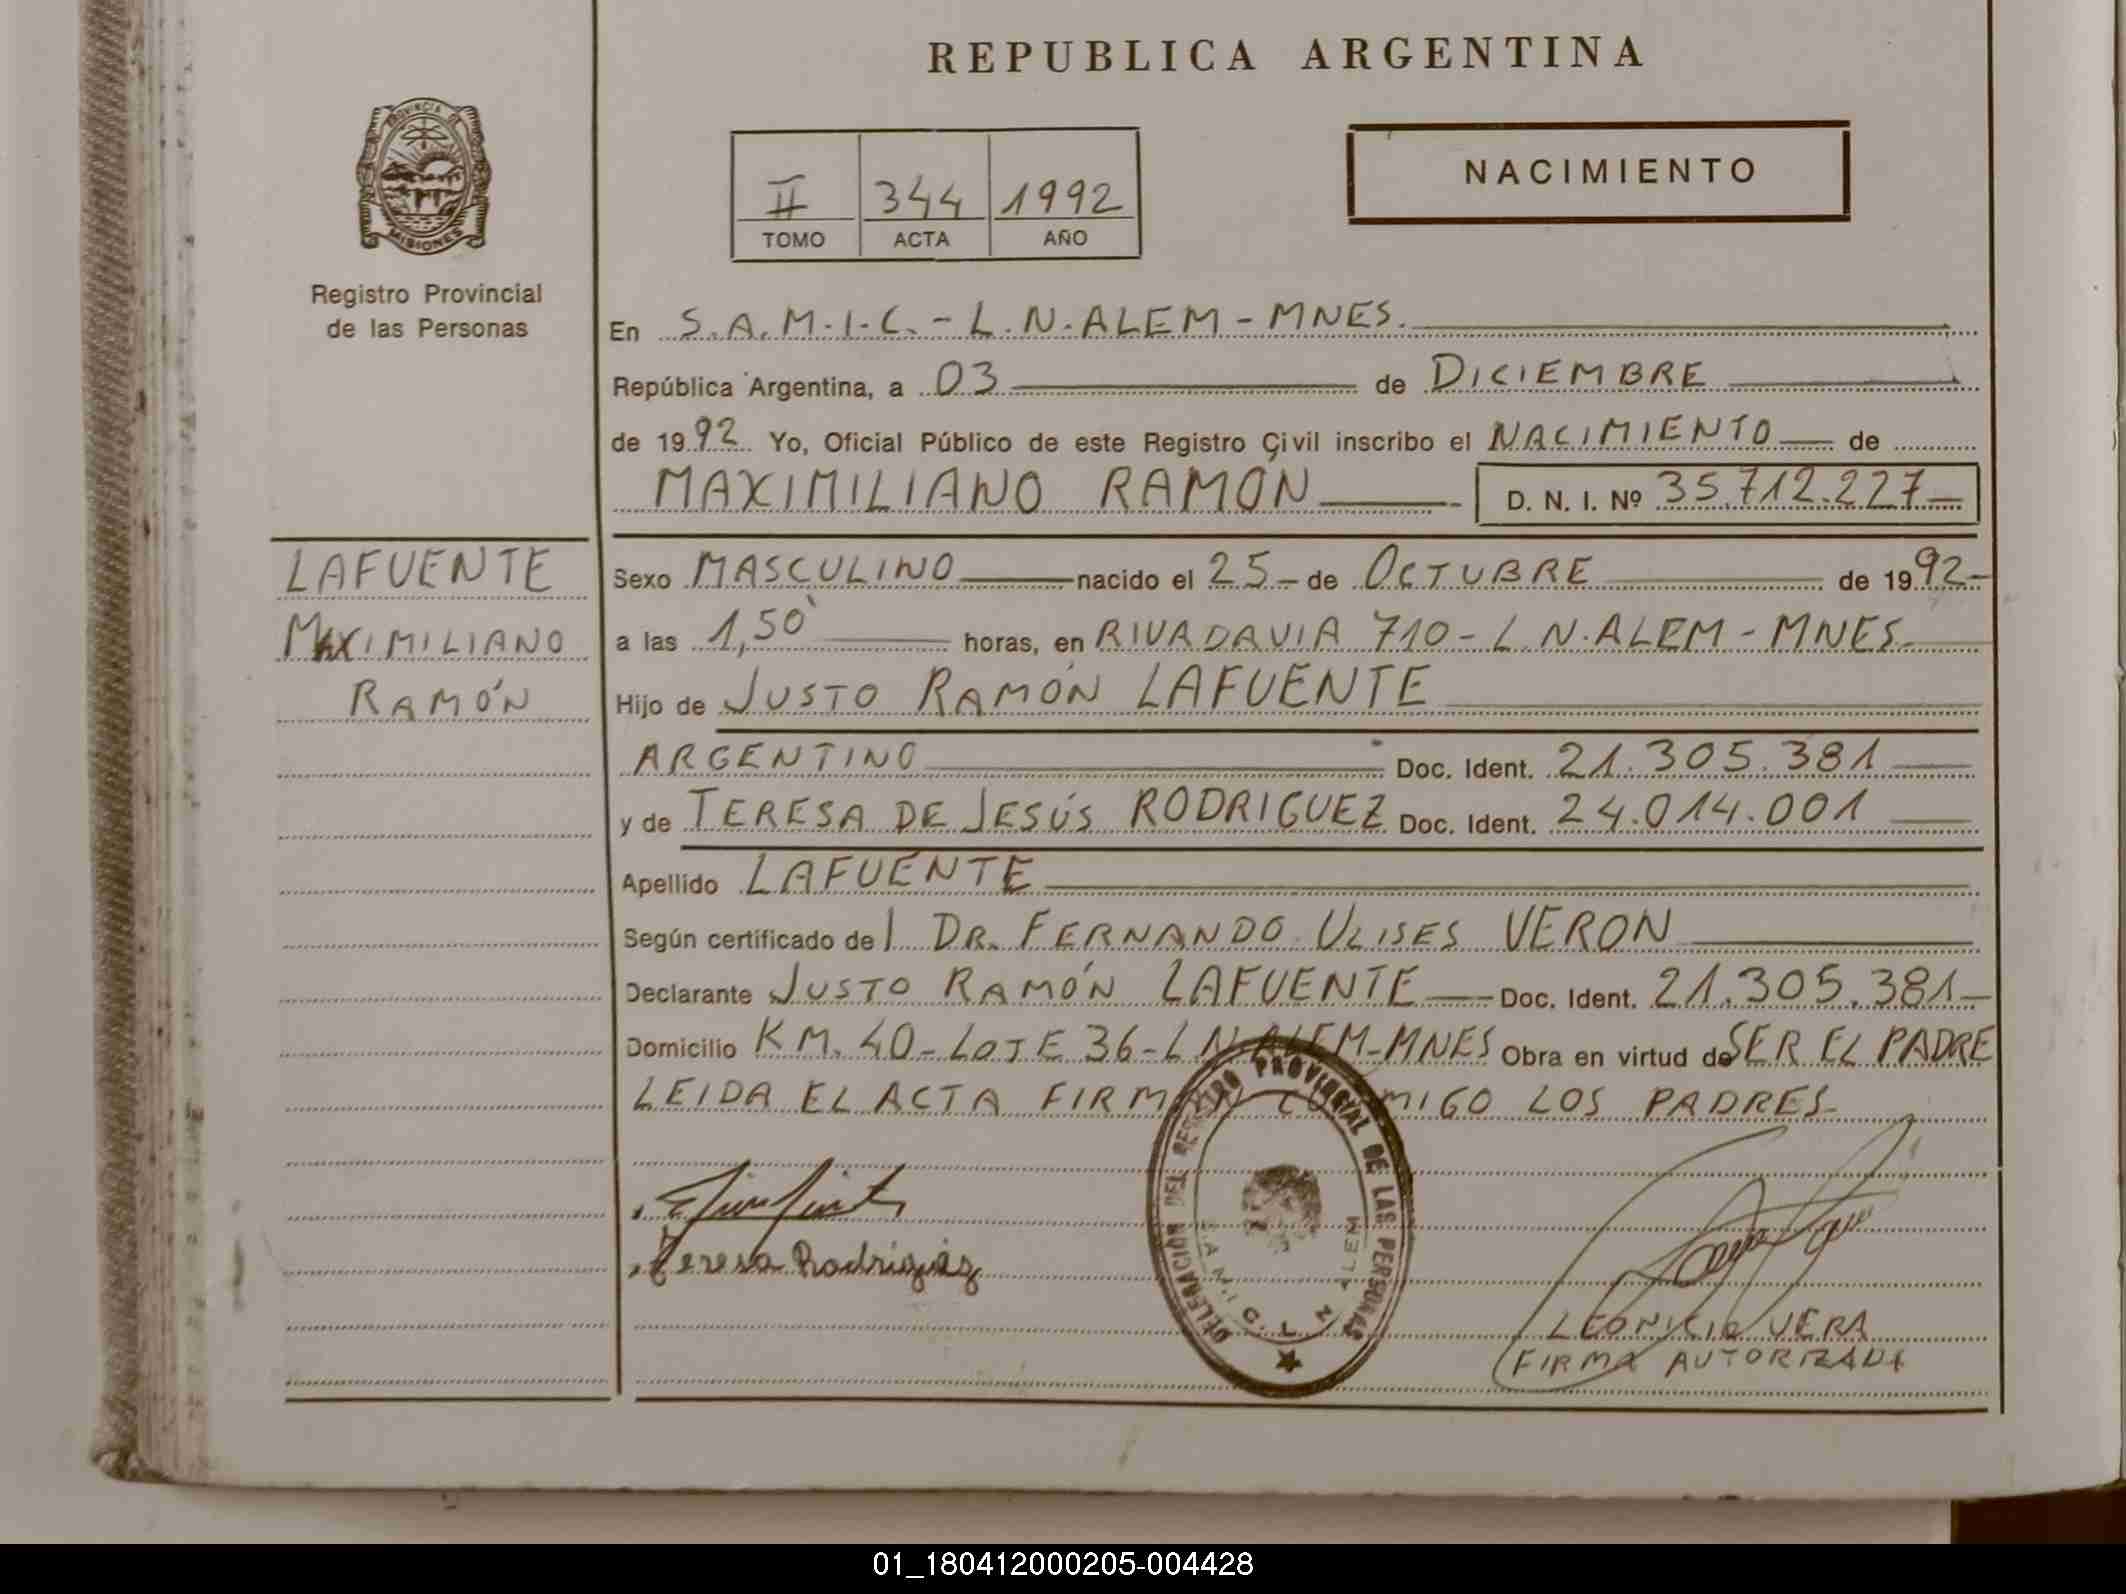 REPUBLICA ARGENTINA
PROVINCIA DE
MISIONES
Registro Provincial
de las Personas
II 344 1992
TOMO ACTA AÑO
NACIMIENTO
En S.A.M.I.C. - L.N. ALEM - MNES.
República Argentina, a 03 de DICIEMBRE
de 1992 Yo, Oficial Público de este Registro Civil inscribo el NACIMIENTO de
MAXIMILIANO RAMÓN D. N. I. Nº 35.712.227
LAFUENTE
MAXIMILIANO
RAMÓN
Sexo MASCULINO nacido el 25 - de OCTUBRE de 1992 -
a las 1,50' horas, en RIVADAVIA 710 - L.N. ALEM - MNES.
Hijo de JUSTO RAMÓN LAFUENTE
ARGENTINO Doc. Ident. 21.305.381
y de TERESA DE JESÚS RODRIGUEZ Doc. Ident. 24.014.001
Apellido LAFUENTE
Según certificado del DR. FERNANDO ULISES VERON
Declarante JUSTO RAMÓN LAFUENTE Doc. Ident. 21.305.381
Domicilio KM. 40 - LOTE 36 - L.N. ALEM - MNES Obra en virtud de SER EL PADRE
LEIDA EL ACTA FIRMAN CONMIGO LOS PADRES
DELEGACIÓN DEL REGISTRO PROVINCIAL DE LAS PERSONAS
L. N. ALEM
Teresa Rodriguez
LEONICIO VERA
FIRMA AUTORIZADA
01_180412000205-004428